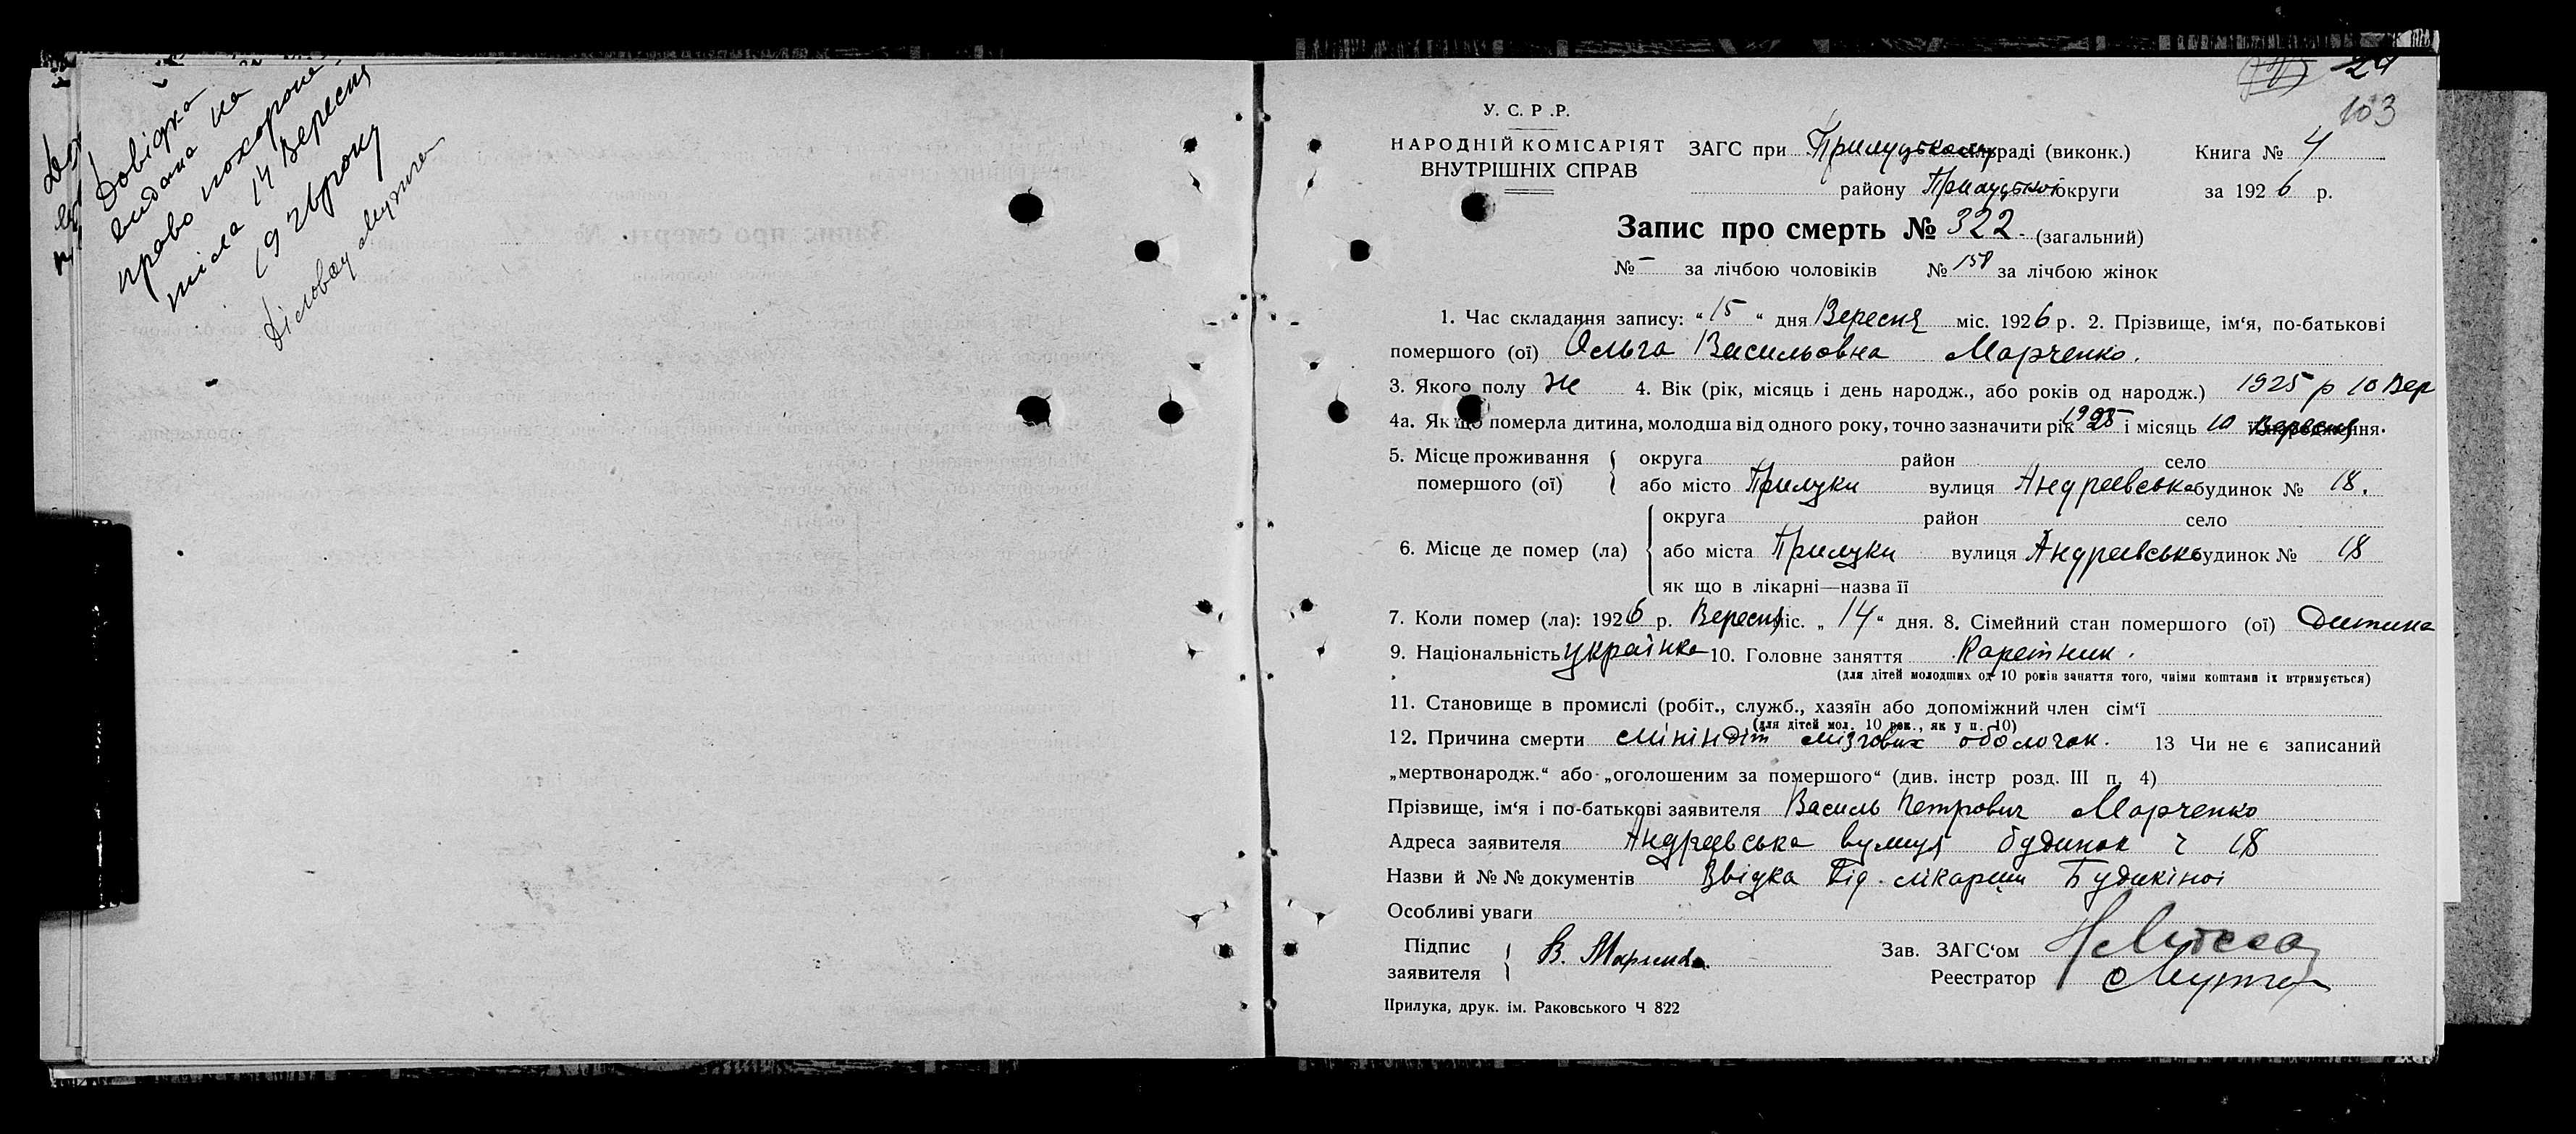 Довідка
видана на
право похорона
тіла 14 Вересня
1926 року
103
У. С. Р .Р.
НАРОДНІЙ КОМІСАРІЯТ
ВНУТРІШНІХ СПРАВ
ЗАГС при Прилуцькому раді (виконк.) Книга № 4
району Прилуцької округи за 1926 р.
Запис про смерть № 322. (загальний)
№ – за лічбою чоловіків № 158 за лічбою жінок
1. Час складання запису: “15“ дня Вересня міс. 1926 р. 2. Прізвище, ім‘я, по-батькові
помершого (ої) Ольга Васильовна Марченко.
3. Якого полу Ж 4. Вік (рік, місяць і день народж., або років од народж.) 1925 р 10 Вер
4а. Як що померла дитина, молодша від одного року, точно зазначити рік 1925 і місяць 10 Вересня її народження.
5. Місце проживання округа район село
помершого (ої) або місто Прилуки вулиця Андреевська будинок № 18.
округа район село
6. Місце де помер (ла) або міста Прилуки вулиця Андреевська будинок № 18
як що в лікарні—назва її
7. Коли помер (ла): 1926 р. Вересня міс. „14“ дня. 8. Сімейний стан помершого (ої) Дитина
9. Національність українка 10. Головне заняття Каретник.
(для дітей молодших од 10 років заняття того, чиїми коштами їх втримується)
11. Становище в промислі (робіт., служб., хазяїн або допоміжний член сім‘ї
(для дітей мол. 10 рок., як у п. 10)
12. Причина смерти мініндіт мізгових оболочок. 13 Чи не є записаний
„мертвонародж.“ або „оголошеним за помершого“ (див. інстр розд. III п. 4)
Прізвище, ім‘я і по-батькові заявителя Василь Петрович Марченко
Адреса заявителя Андреевська вулиця будинок ч 18
Назви й № № документів Звідка Від. лікарши
Особливі уваги
Підпис
заявителя В.
Зав. ЗАГС‘ом
Реестратор
Прилука, друк. ім. Раковського Ч 822